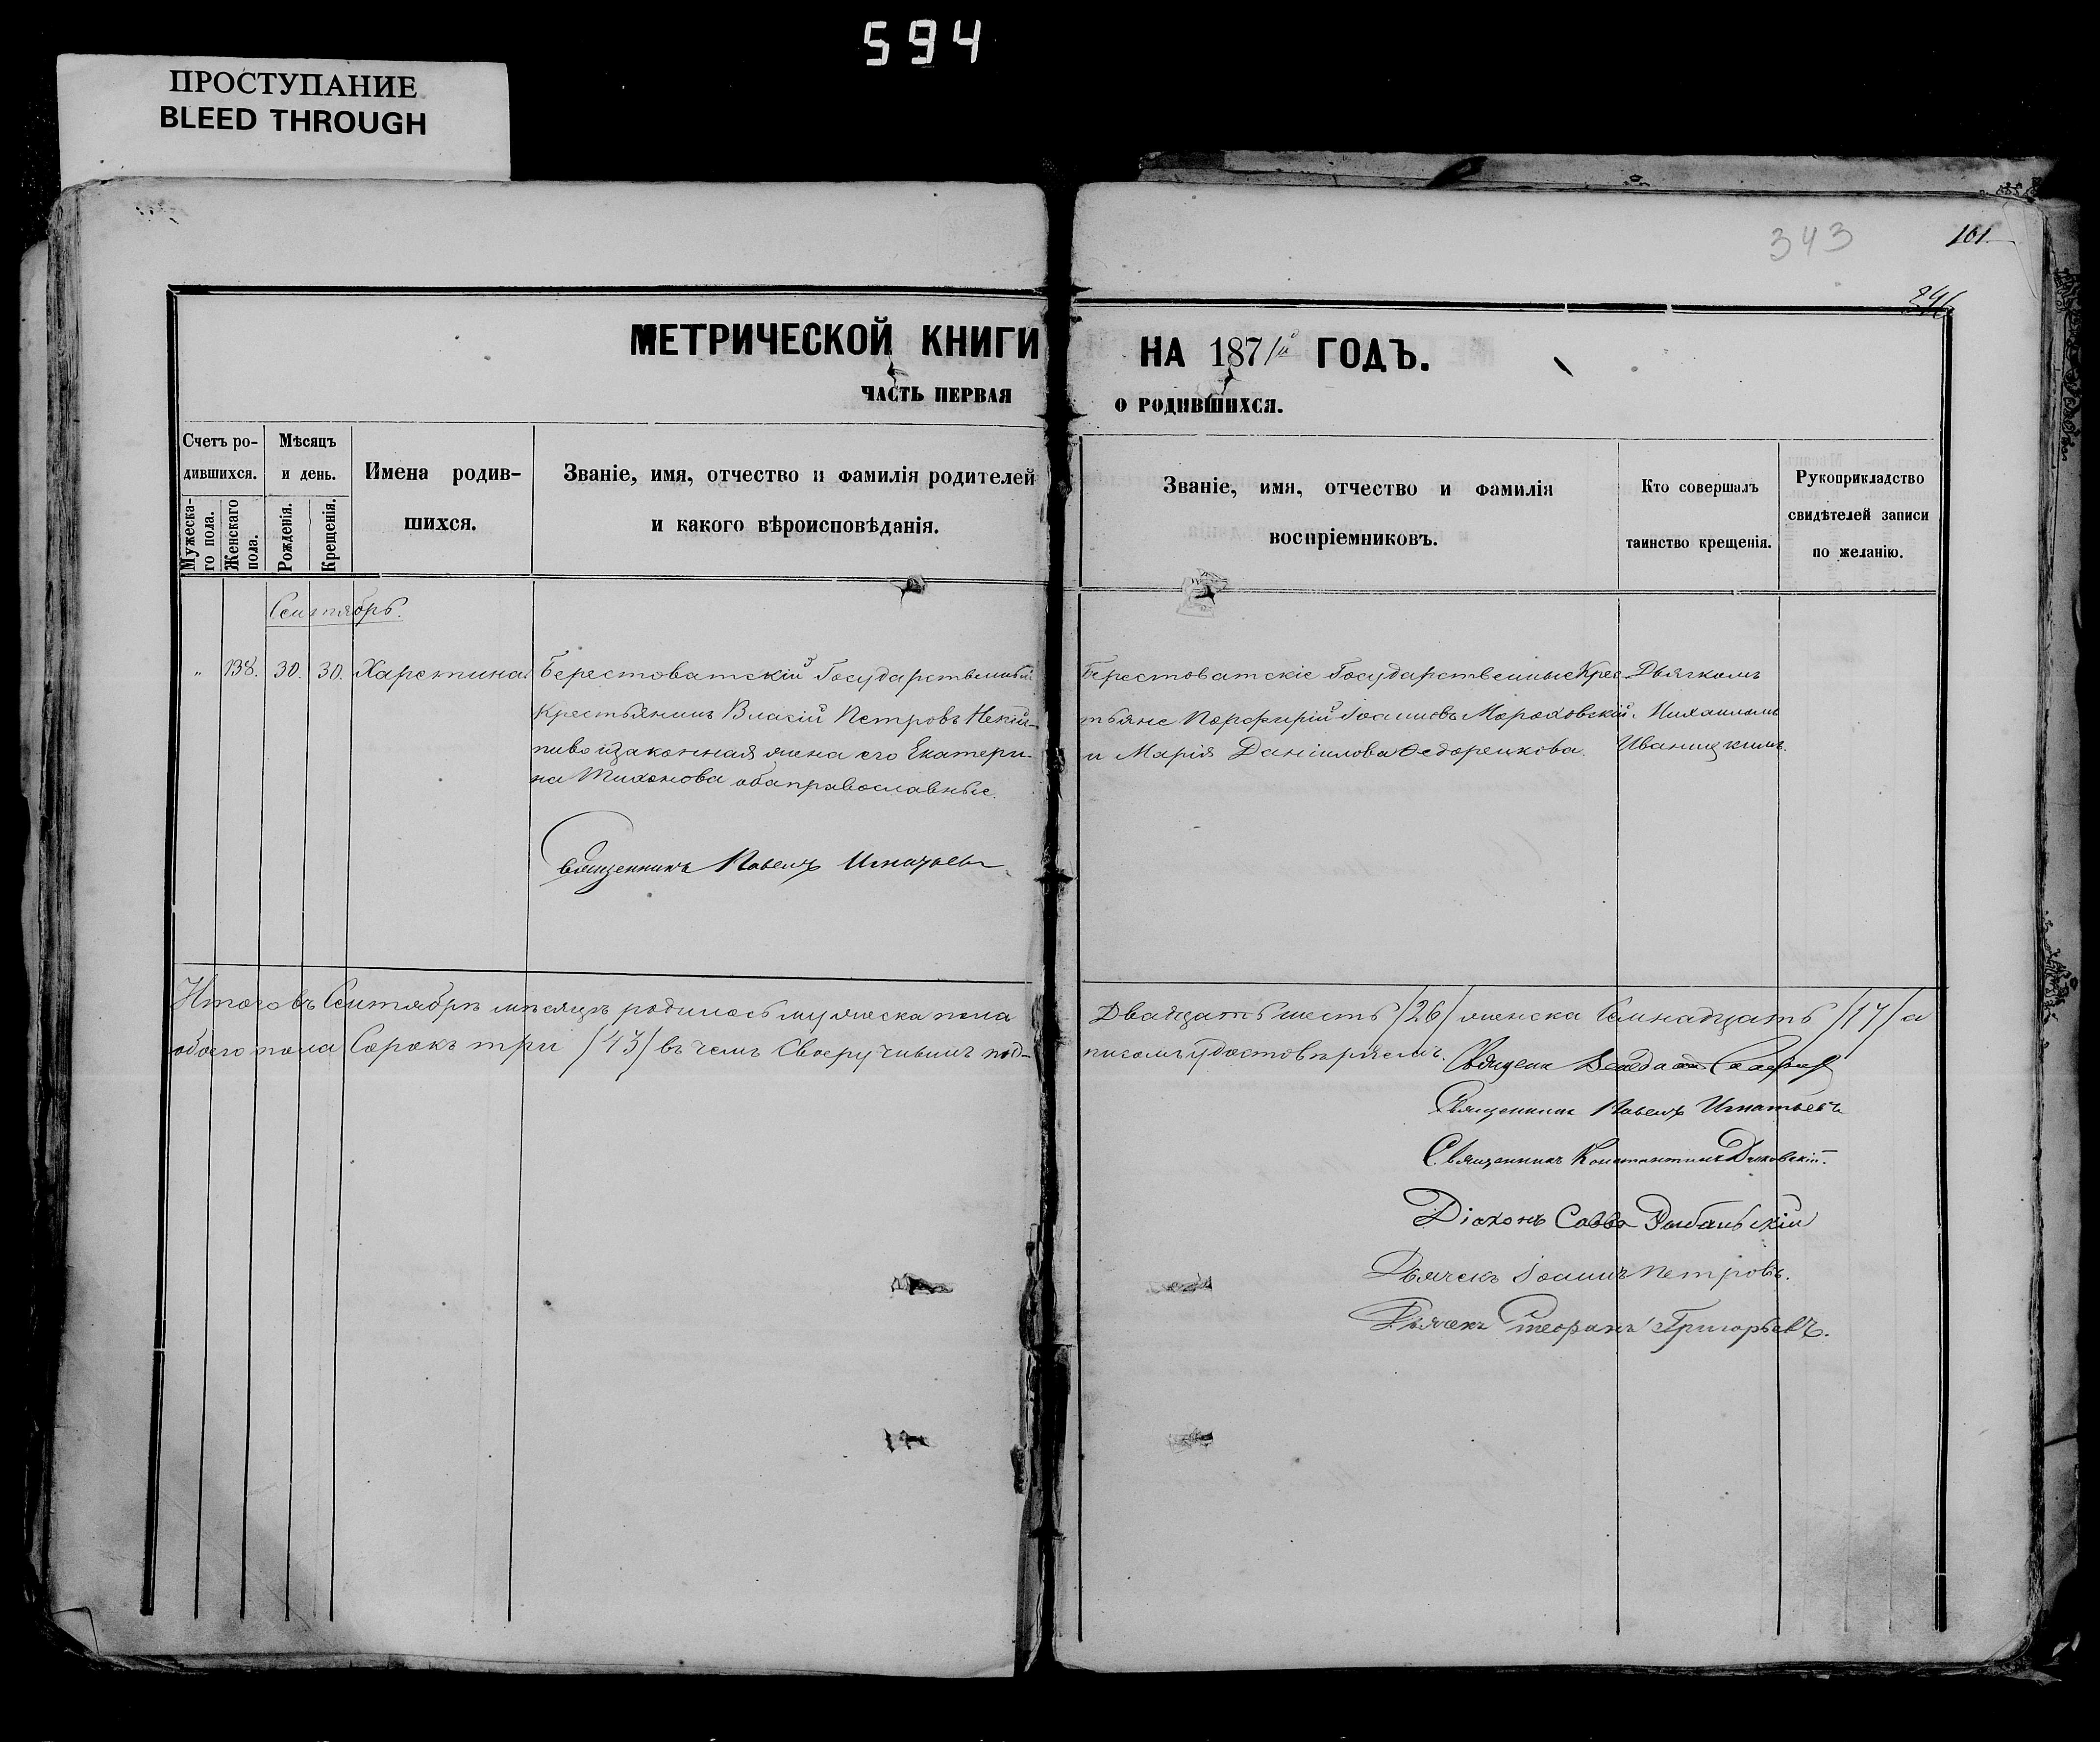 594
ПРОСТУПАНИЕ
BLEED THROUGH
343
101
МЕТРИЧЕСКОЙ КНИГИ НА 1871й ГОДЪ.
ЧАСТЬ ПЕРВАЯ О РОДИВШИХСЯ.
Счетъ ро-
дившихся.
Мужеска-
го пола.
Женскаго
пола.
Мѣсяцъ
и день.
Рожденія.
Крещенія.
Имена родив-
шихся.
Званіе, имя, отчество и фамилія родителей
и какого вѣроисповѣданія.
Званіе, имя, отчество и фамилія
воспріемниковъ.
Кто совершалъ
таинство крещенія.
Рукоприкладство
свидѣтелей записи
по желанію.
Сентябрь.
" 138. 30. 30. Харетина
Берестоватскій Государственный
Крестьянинъ Власій Петровъ
и законная жена его Екатери-
на Тихонова оба православные.
Священникъ Павелъ Игнатьевъ
Берестоватскіе Государственные Крес
тьяне Порфирій Іоанновъ Мороховскій
и Марія Даніилова Федоренкова.
Дьячкомъ
Михаиломъ
Иваницкимъ.
Итого въ Сентябрѣ мѣсяцѣ родилось мужеска пола Двадцать шесть /26/ женска Семнадцать /17/ а
обоего пола Сорокъ три /43/ въ чемъ Своеручнымъ под-писомъ удостовѣряемъ.
Священникъ Павелъ Игнатьевъ
Священникъ Константинъ
Діаконъ Савва Рыбальскій
Дьячекъ Іоаннъ Петровъ.
Дьячекъ Стефанъ Григорьевъ.